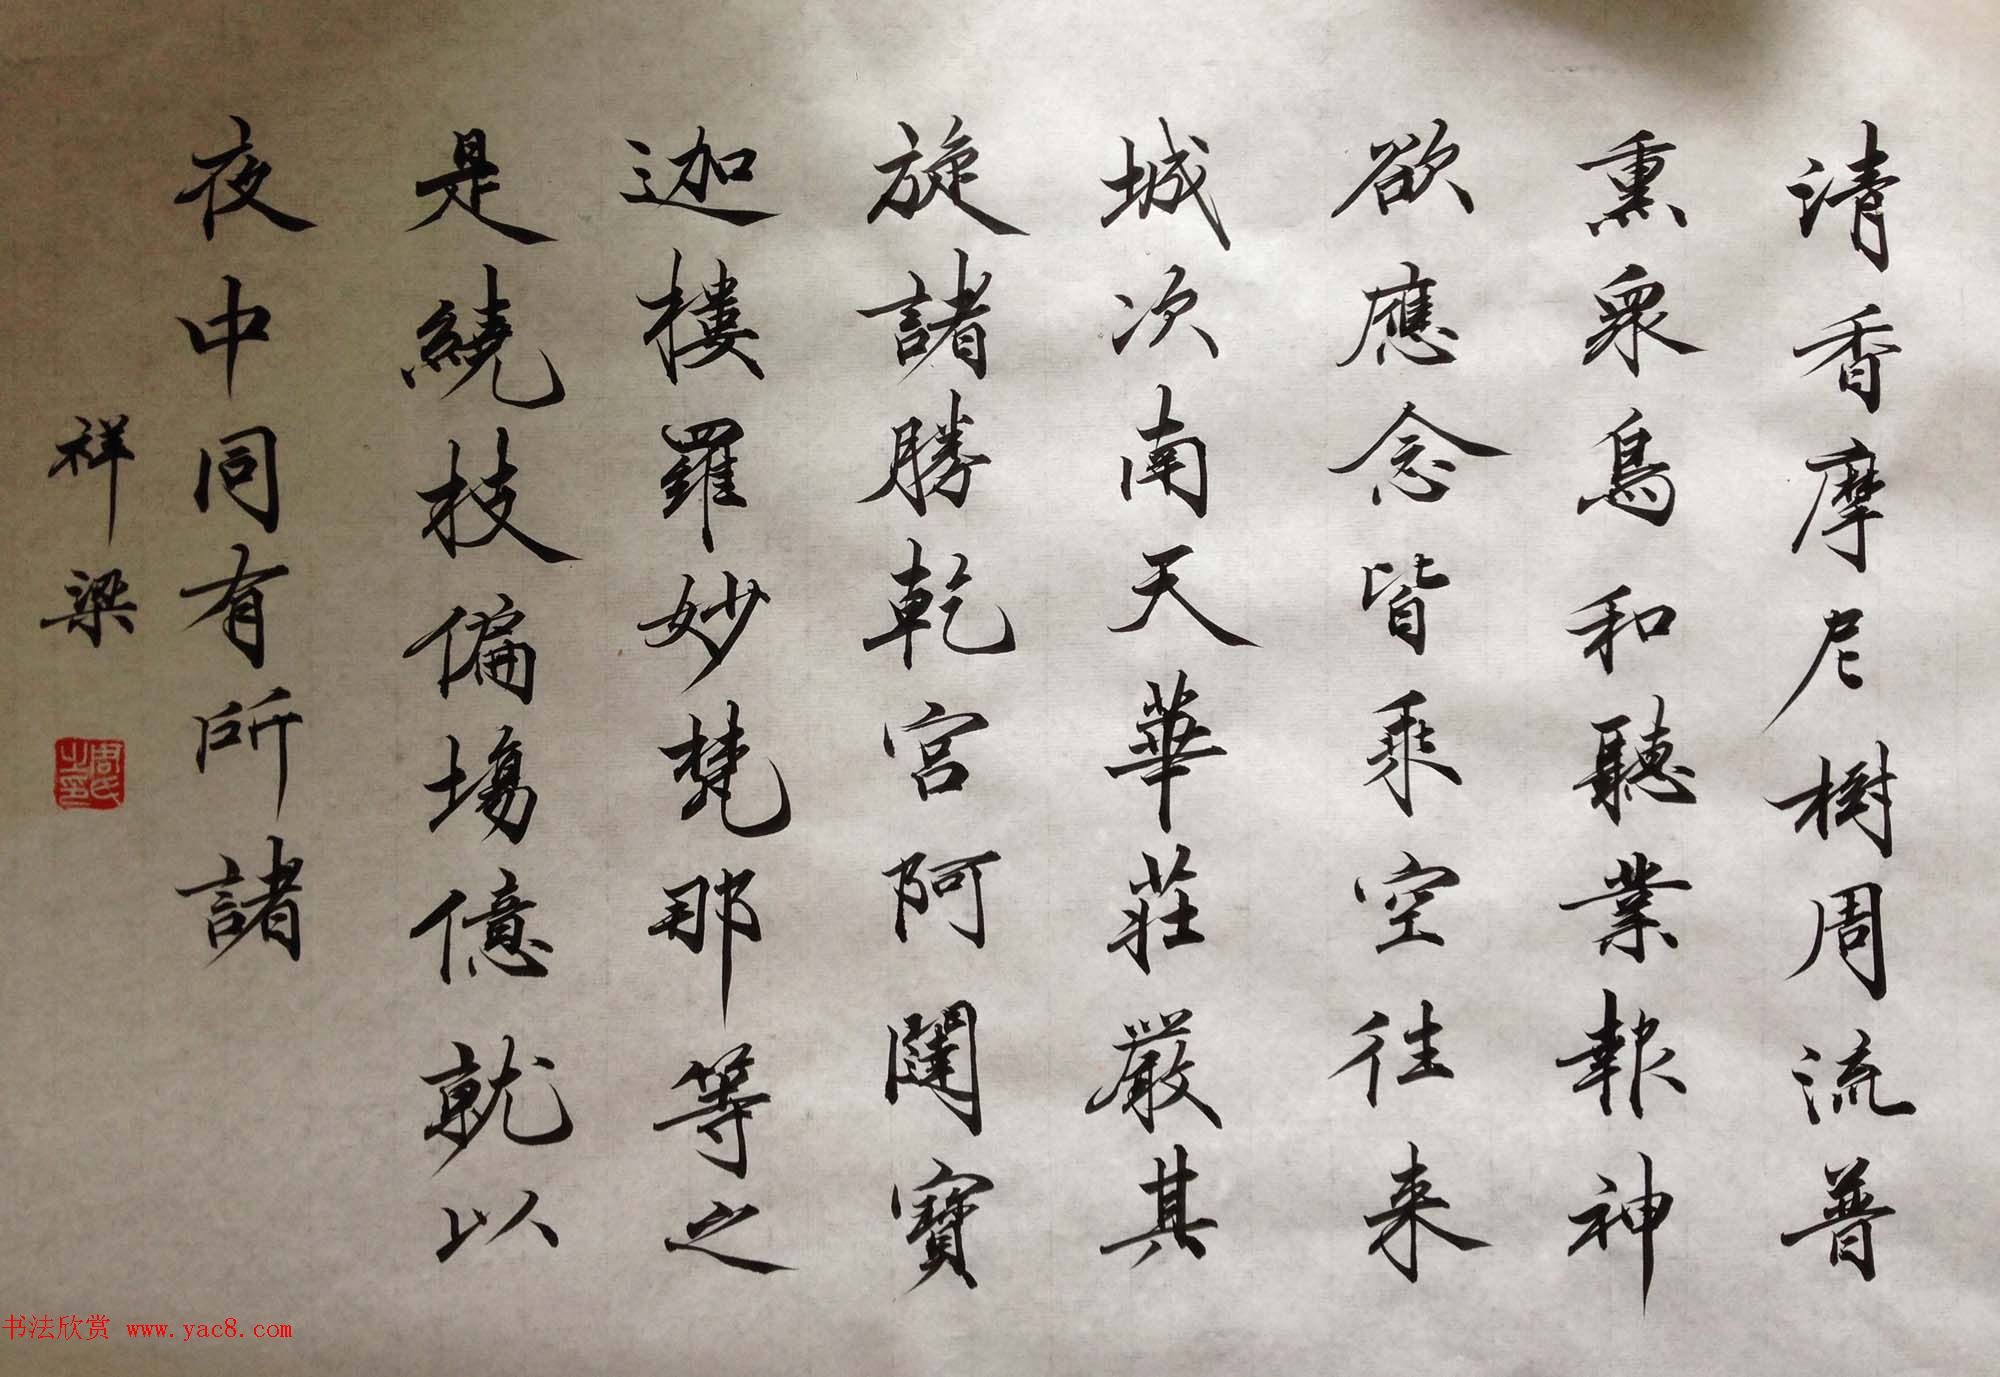 清香摩尼樹周流普
熏眾鳥和聽業報神
欲應念皆乘空往来
城次南天華莊嚴其
旋諸勝乾宮阿闥寶
迦樓羅妙梵那等之
是繞枝偏場億就以
夜中同有所諸
祥梁
周氏之印
书法欣赏 www.yac8.com